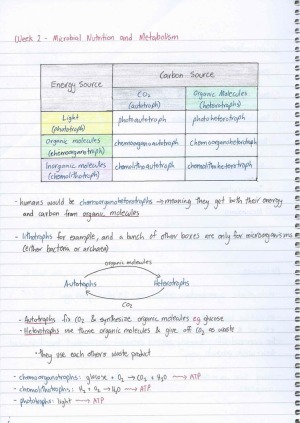 Week 2 - Microbial Nutrition and Metabolism
Energy Source
Carbon Source
CO2
(autotroph)
Organic Molecules
(heterotrophs)
Light
(phototroph)
photoautotroph
photoheterotroph
Organic molecules
(chemoorganotroph)
chemoorganoautotroph
chemoorganoheterotroph
Inorganic molecules
(chemolithotroph)
chemolithoautotroph
chemolithoheterotroph
- humans would be chemoorganoheterotrophs → meaning they get both their energy
and carbon from organic molecules
- lithotrophs for example, and a bunch of other boxes are only for microorganisms
(either bacteria or archaea)
organic molecules
Autotrophs
Heterotrophs
CO2
- Autotrophs fix CO2 & synthesize organic molecules eg glucose
- Heterotrophs use those organic molecules & give off CO2 as waste
*they use each others waste product
- chemoorganotrophs: glucose + O2 → CO2 + H2O → ATP
- chemolithotrophs: H2 + O2 → H2O → ATP
- phototrophs: light → ATP